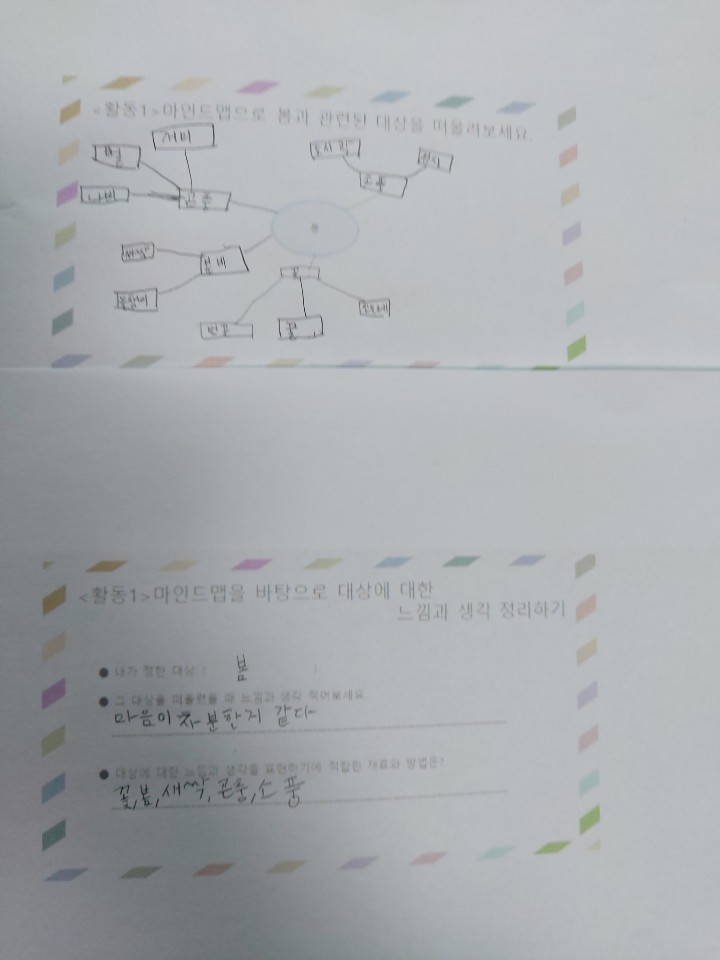 <활동1>마인드맵으로 봄과 관련된 대상을 떠올려보세요.
제비
벌
나비
곤충
도시락
소풍
봄
새싹
꽃
벚꽃
꿀
<활동1>마인드맵을 바탕으로 대상에 대한
느낌과 생각 정리하기
● 내가 정한 대상 ( 봄 )
● 그 대상을 떠올렸을 때 느낌과 생각 적어보세요
마음이 차분한지 같다
● 대상에 대한 느낌과 생각을 표현하기에 적합한 재료와 방법은?
꽃,봄,새싹,곤충,소풍